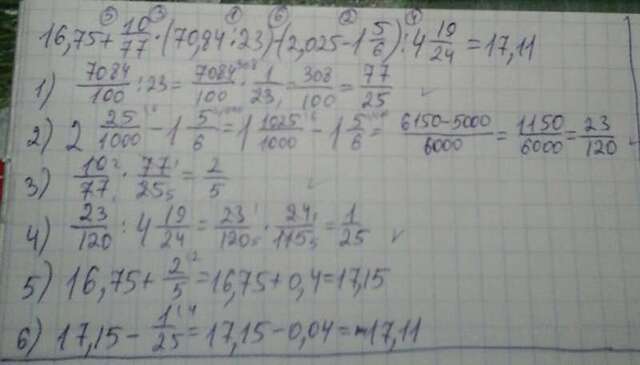 ⑤ ③ ① ⑥ ② ④
16,75+10/77·(70,84:23)-(2,025-1 5/6):4 19/24=17,11
1) 7084/100:23=7084/100·1/23=308/100=77/25
2) 2 25/1000-1 5/6=1 1025/1000-1 5/6=6150-5000/6000=1150/6000=23/120
3) 10/77·77/25=2/5
4) 23/120:4 19/24=23/120·24/115=1/25
5) 16,75+2/5=16,75+0,4=17,15
6) 17,15-1/25=17,15-0,04=17,11